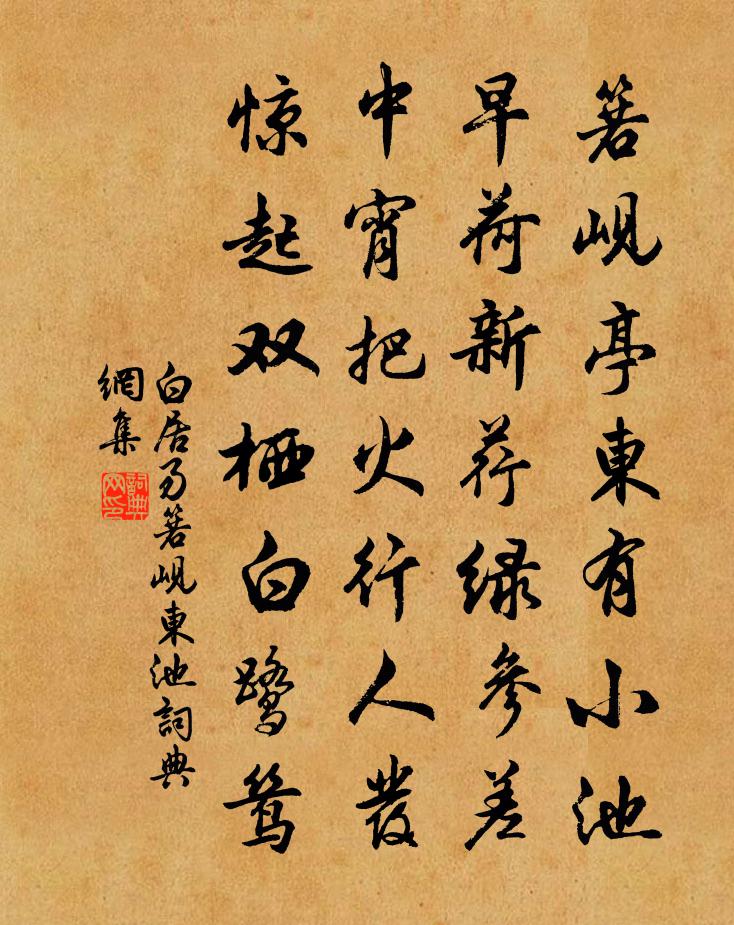 箬岘亭東有小池
早荷新荇绿參差
中宵把火行人發
惊起双栖白鹭鸶
白居易箬岘東池詞典
網集
詞典
网印